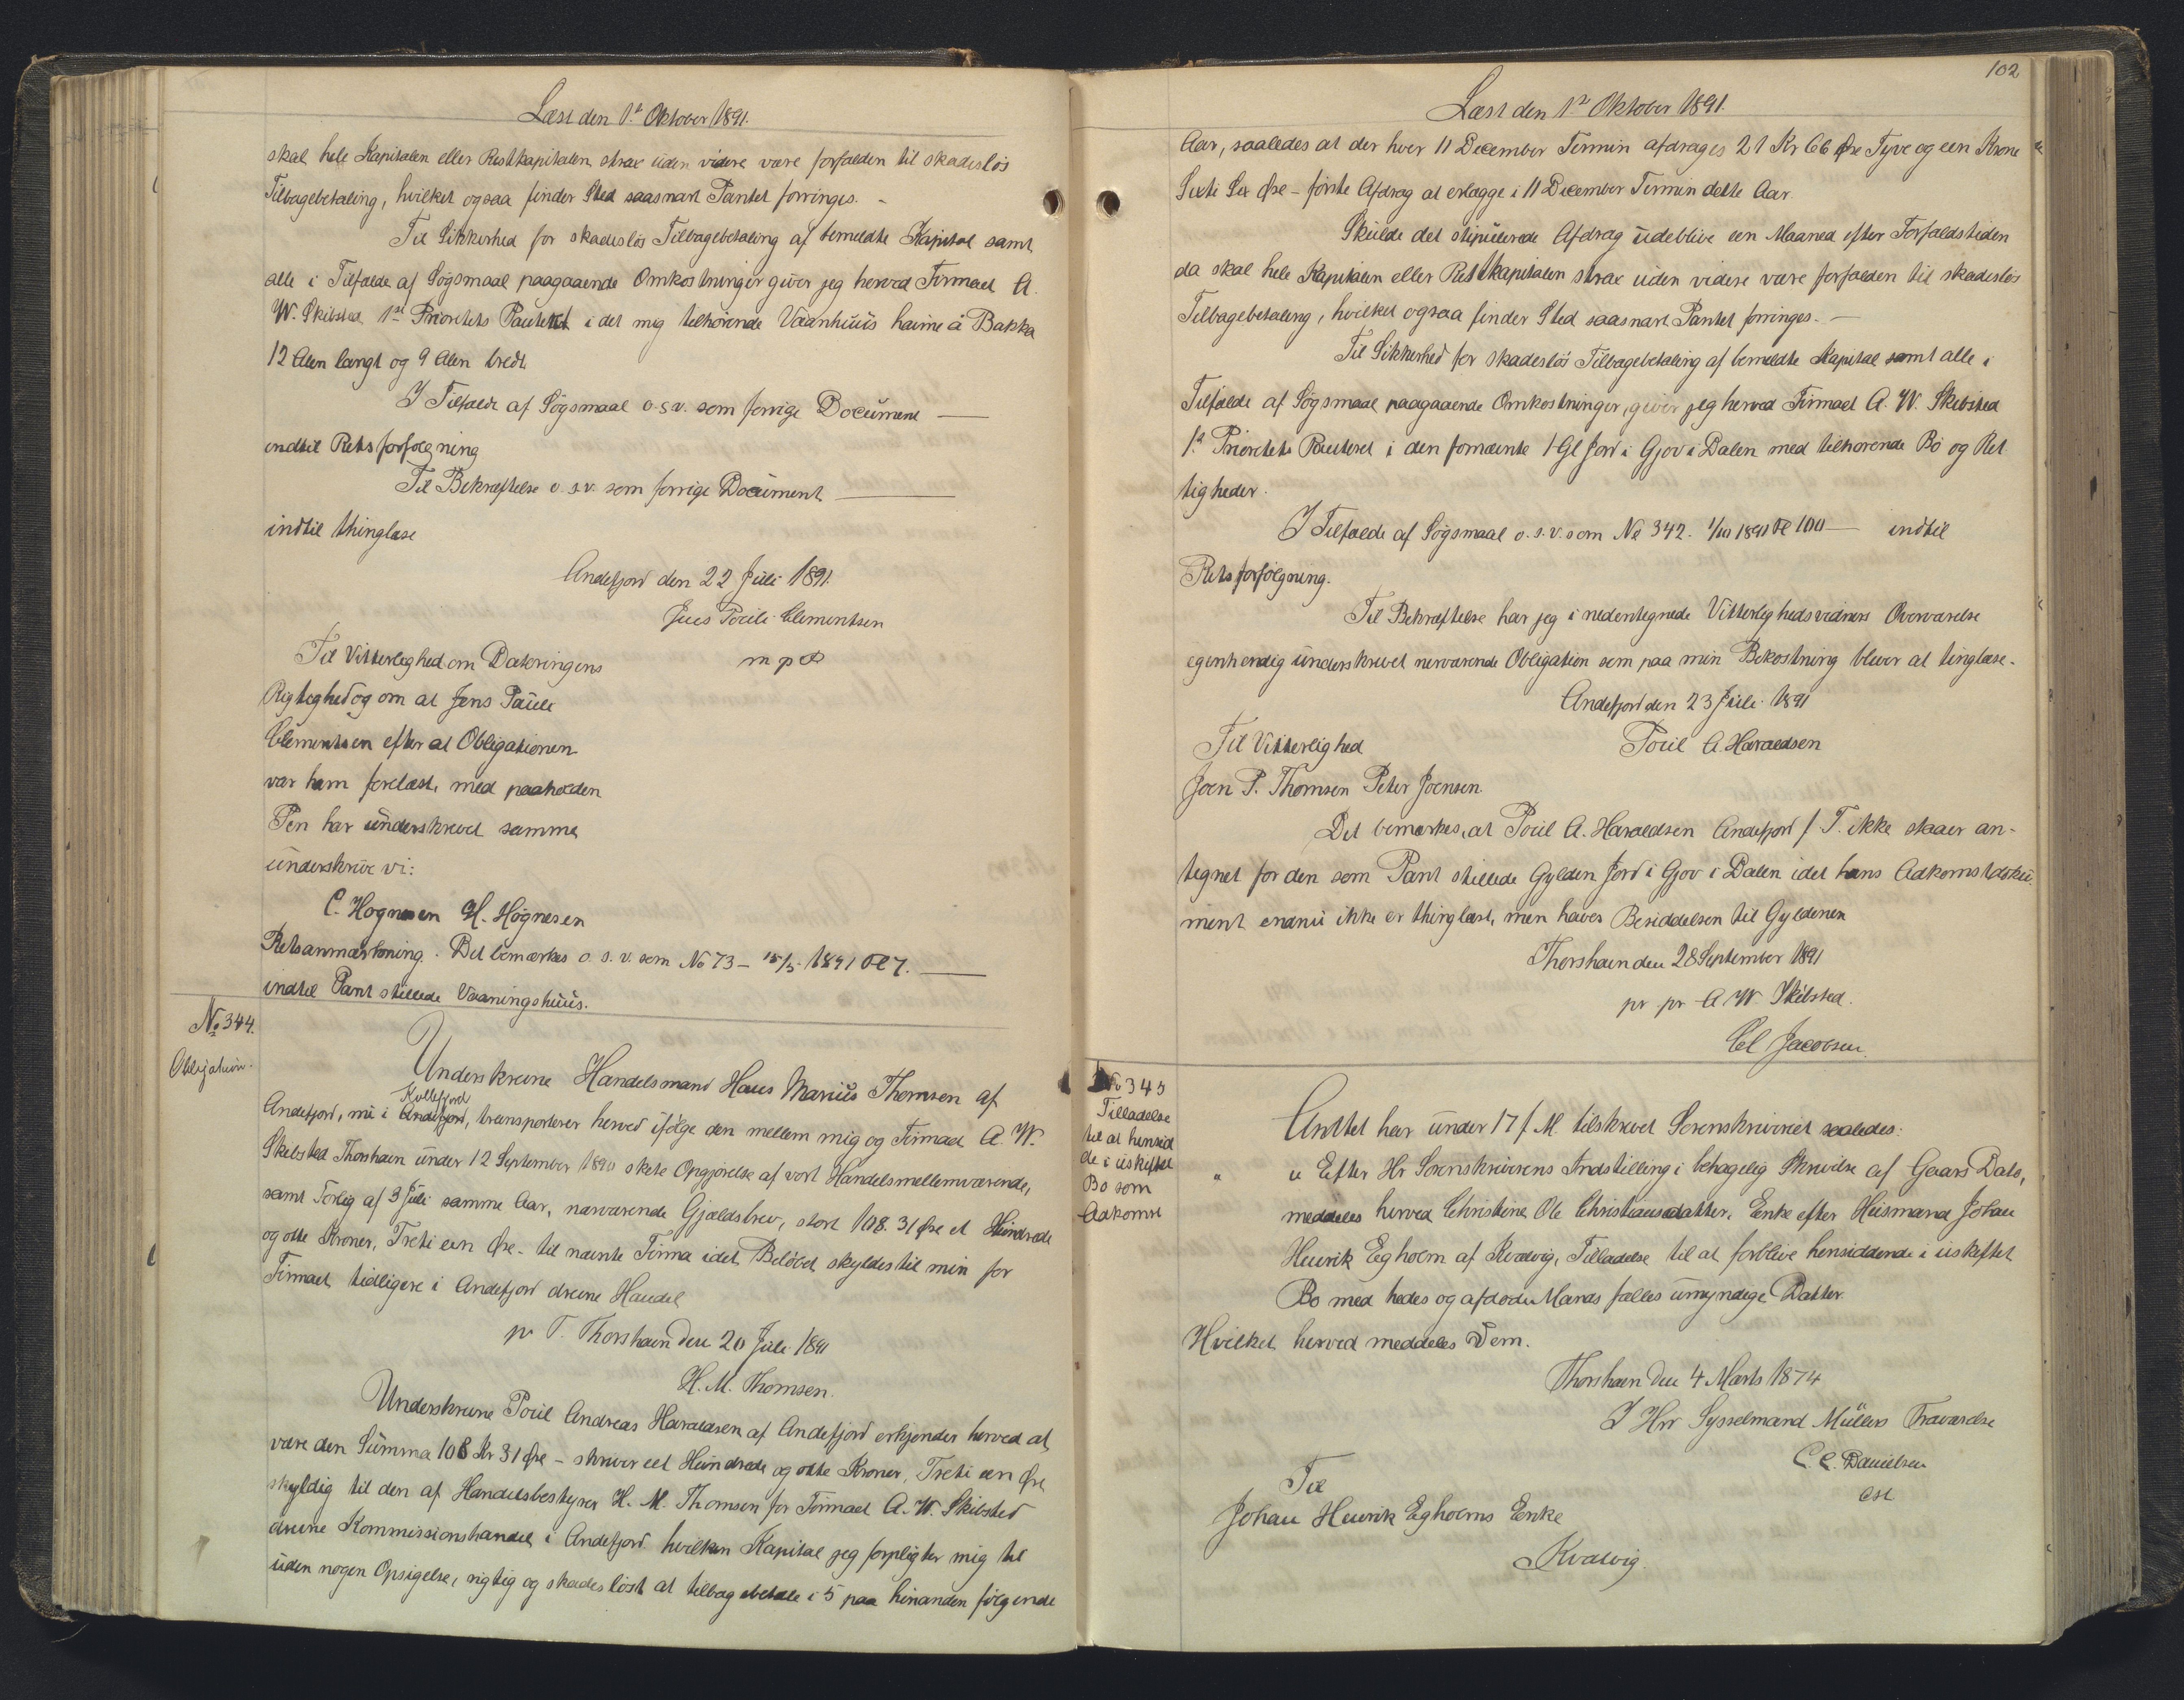 Læst den 1ste Oktober 1891.
skal hele Kapitalen eller Restkapitalen strax uden videre være forfalden til skadesløs
Tilbagebetaling, hvilket ogsaa finder Sted saasnart Pantet forringes. -
Til Sikkerhed for skadesløs Tilbagebetaling af bemeldte Kapital samt
alle i Tilfælde af Søgsmaal paagaaende Omkostninger giver jeg herved Firmaet A.
W. Skibsted 1ste Prioritets Panteret i det mig tilhørende Vaanhuus haime á Bakka
12 Alen langt og 9 Alen bredt.
I Tilfælde af Søgsmaal o.s.v. som forrige Document —
indtil Retsforfølgning
Til Bekræftelse o.s.v. som forrige Document —
indtil thinglæse
Andefjord den 22 Juli 1891.
Jens Pouli Clementsen
m p P
Til Vitterlighed om Dateringens
Rigtighed og om at Jens Pauli
Clementsen efter at Obligationen
var ham forelæst, med paaholden
Pen har underskrevet samme
underskrive vi:
C. Hognesen H. Högnesen
Retsanmærkning. Det bemærkes o.s.v. som No 73 - 15/5 1891 Fol 7. —
indtil Pant stillede Vaaningshuus.
No 344.
Obligation.
Underskrevne Handelsmand Hans Marius Thomsen af
Kollefjord
Andefjord, nu i Andefjord, transporterer herved ifølge den mellem mig og Firmaet A. W.
Skibsted Thorshavn under 12 September 1890 skete Opgjørelse af vort Handelsmellemværende,
samt Forlig af 3 Juli samme Aar, nærværende Gjældsbrev, stort 108. 31 Øre et Hundrede
og otte Kroner, Treti een Øre - til nævnte Firma idet Beløbet skyldes til min for
Firmaet tidligere i Andefjord drevne Handel
pr T. Thorshavn den 20 Juli 1891
H. M. Thomsen.
Underskrevne Poul Andreas Haraldsen af Andefjord erkjender herved at
være den Summa 108 Kr 31 Øre - skriver eet Hundrede og otte Kroner, Treti een Øre
skyldig til den af Handelsbestyrer H. M. Thomsen for Firmaet A. W. Skibsted
drevne Kommissionshandel i Andefjord hvilken Kapital jeg forpligter mig til
uden nogen Opsigelse, rigtig og skadesløst at tilbagebetale i 5 paa hinanden følgende
102
Læst den 1ste Oktober 1891.
Aar, saaledes at der hver 11 December Termin afdrages 21 Kr 66 Øre Tyve og een Krone
Sexti Sex Øre - første Afdrag at erlægge i 11 December Termin dette Aar.
Skulde det stipulerede Afdrag udeblive een Maaned efter Forfaldstiden
da skal hele Kapitalen eller Restkapitalen strax uden videre være forfalden til skadesløs
Tilbagebetaling, hvilket ogsaa finder Sted saasnart Pantet forringes. —
Til Sikkerhed for skadesløs Tilbagebetaling af bemeldte Kapital samt alle i
Tilfælde af Søgsmaal paagaaende Omkostninger, giver jeg herved Firmaet A. W. Skibsted
1ste Prioritets Panteret i den fornævnte 1 Gl Jord i Gjov i Dalen med tilhørende Bø og Ret
tigheder.
I Tilfælde af Søgsmaal o.s.v. som No 342. 1/10 1891 Fol 100 — indtil
Retsforfølgning.
Til Bekræftelse har jeg i nedentegnede Vitterlighedsvidners Overværelse
egenhændig underskrevet nærværende Obligation som paa min Bekostning bliver at tinglæse.
Andefjord den 23 Juli 1891
Til Vitterlighed Poul A. Haraldsen
Joen P. Thomsen Peter Joensen.
Det bemærkes, at Poul A. Haraldsen Andefjord f. T. ikke staaer an-
tegnet for den som Pant stillede Gylden Jord i Gjov i Dalen idet hans Adkomstdoku-
ment endnu ikke er thinglæst, men haver Besiddelsen til Gyldenen
Thorshavn den 28 September 1891
pr pr A W Skibsted.
Cl Jacobsen.
No 345
Tilladelse
til at hensid
de i uskiftet
Bo som
Adkomst
Amtet har under 17 f. M. tilskrevet Sorenskriveriet saaledes:
" Efter Hr Sorenskriverens Indstilling i behagelig Skrivelse af Gaars Dato,
meddeles herved Christine Ole Christiansdatter, Enke efter Husmand Johan
Henrik Egholm af Kvalvig, Tilladelse til at forblive hensiddende i uskiftet
Bo med hedes og afdøde Mands fælles umyndige Datter.
Hvilket herved meddeles Dem.
Thorshavn den 4 Marts 1874
I Hrr Sysselmand Müllers Fraværelse
C. C. Danielsen
cst
Til
Johan Henrik Egholms Enke
Kvalvig.